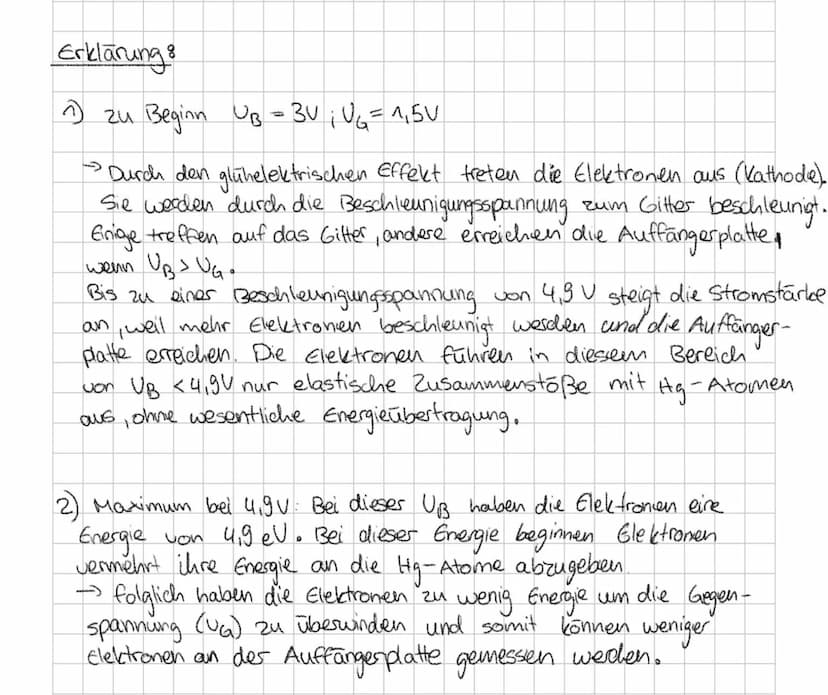 Erklärung:
1) zu Beginn U_B = 3V ; U_G = 1,5V
→ Durch den glühelektrischen Effekt treten die Elektronen aus (Kathode).
Sie werden durch die Beschleunigungsspannung zum Gitter beschleunigt.
Einige treffen auf das Gitter, andere erreichen die Auffängerplatte,
wenn U_B > U_G.
Bis zu einer Beschleunigungsspannung von 4,9 V steigt die Stromstärke
an, weil mehr Elektronen beschleunigt werden und die Auffänger-
platte erreichen. Die Elektronen führen in diesem Bereich
von U_B < 4,9V nur elastische Zusammenstöße mit Hg-Atomen
aus, ohne wesentliche Energieübertragung.
2) Maximum bei 4,9V: Bei dieser U_B haben die Elektronen eine
Energie von 4,9 eV. Bei dieser Energie beginnen Elektronen
vermehrt ihre Energie an die Hg-Atome abzugeben.
→ folglich haben die Elektronen zu wenig Energie um die Gegen-
spannung (U_G) zu überwinden und somit können weniger
Elektronen an der Auffängerplatte gemessen werden.